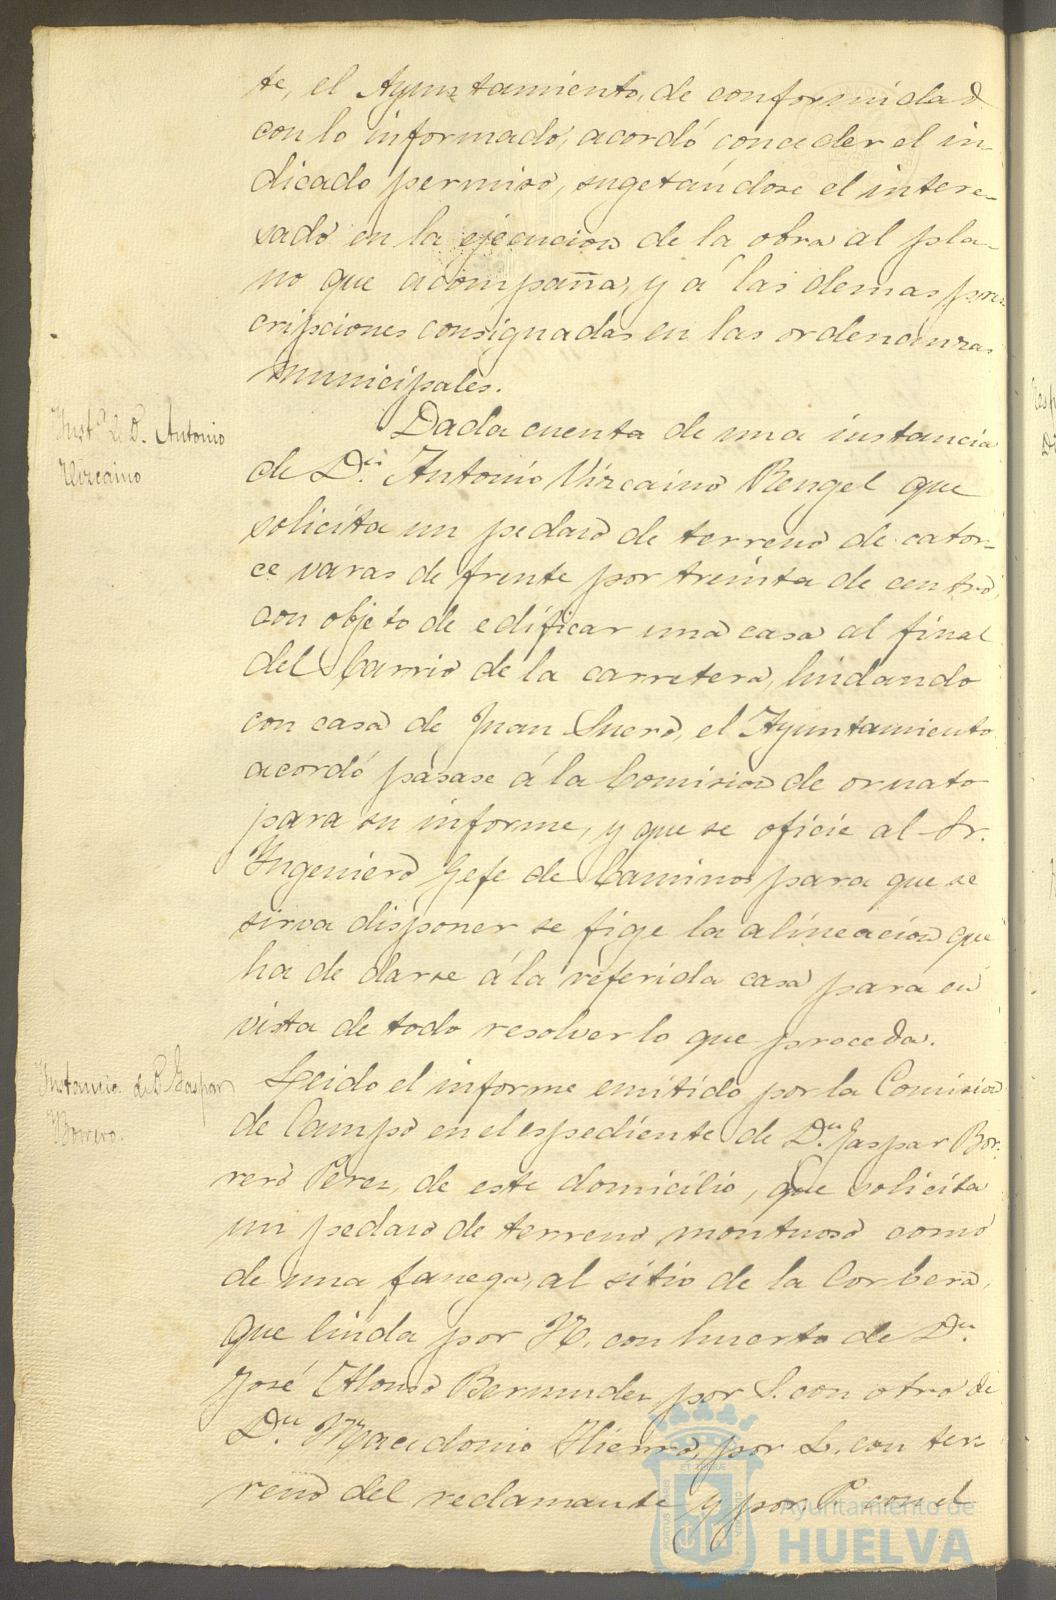 te, el Ayuntamiento, de conformidad
con lo informado, acordó conceder el in-
dicado permiso, sugetándose el intere-
sado en la ejecucion de la obra al pla-
no que acompaña, y á las demas pres
cripciones consignadas en las ordenanzas
municipales.
Inst.ª de D. Antonio
Vizcaino
Dada cuenta de una instancia
de D.n Antonio Vizcaino Rengel que
solicita un pedazo de terreno de cator-
ce varas de frente por treinta de centro,
con objeto de edificar una casa al final
del Barrio de la carretera, lindando
con casa de Juan Suero, el Ayuntamiento
acordó pasase á la Comision de ornato
para su informe, y que se oficie al Sr.
Ingeniero Gefe de Caminos para que se
sirva disponer se fige la alineacion que
ha de darse á la referida casa para en
vista de todo resolver lo que proceda.
Instancia de D. Gaspar
Borrero.
Leido el informe emitido por la Comision
de Campo en el espediente de D.n Gaspar Bor-
rero Perez, de este domicilio, que solicita
un pedazo de terreno montuoso como
de una fanega, al sitio de la Corbera,
que linda por N. con huerto de D.n
José Alonso Bermudez, por S. con otro de
D.n Macedonio Hierro, por L. con ter-
reno del reclamante y por P. con el
Ayuntamiento de
HUELVA